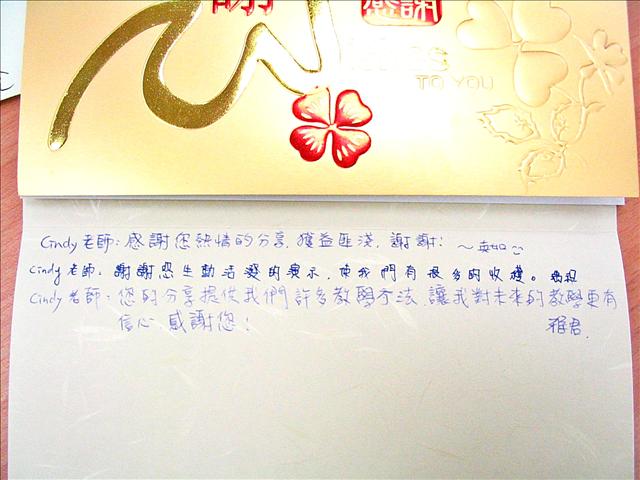 謝
感謝
TO YOU
Cindy老師:感謝您熱情的分享,獲益匪淺,謝謝!
Cindy老師:謝謝您生動活潑的演示,使我們有很多的收穫。
Cindy老師:您的分享提供我們許多教學方法,讓我對未來的教學更有
信心,感謝您!
雅君